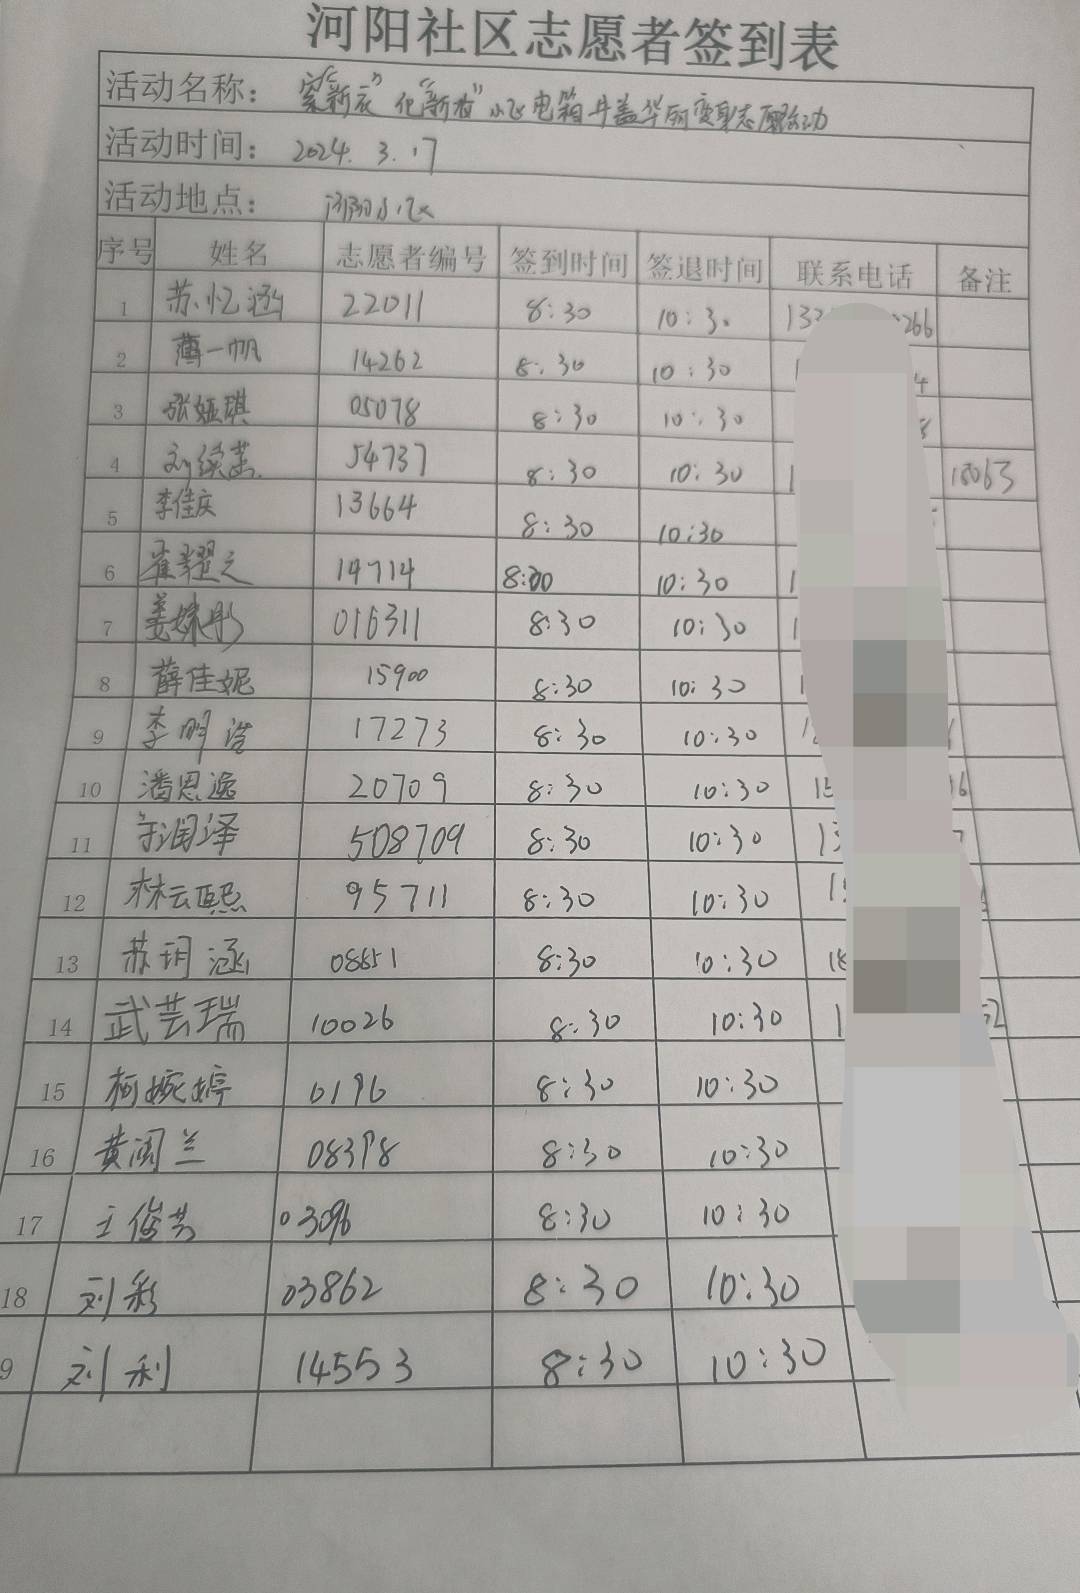 河阳社区志愿者签到表
活动名称： 穿"新衣" 化"新妆" 小区电箱井盖华丽变身志愿活动
活动时间： 2024. 3. 17
活动地点： 河阳小区
序号 姓名 志愿者编号 签到时间 签退时间 联系电话 备注
1 苏忆涵 22011 8:30 10:30 133 266
2 薄一帆 14262 8:30 10:30 1 4
3 张娅琪 05078 8:30 10:30 8
4 刘续蕊 54737 8:30 10:30 1 18063
5 李佳庆 13664 8:30 10:30
6 崔耀之 14714 8:30 10:30 1
7 姜姝彤 016311 8:30 10:30 1
8 薛佳妮 15900 8:30 10:30 1
9 李明浩 17273 8:30 10:30 1
10 潘思逸 20709 8:30 10:30 15 16
11 于润泽 508709 8:30 10:30 13 7
12 林云熙 95711 8:30 10:30 1
13 苏玥涵 08651 8:30 10:30 18
14 武芸瑞 10026 8:30 10:30 1 52
15 柯婉婷 0196 8:30 10:30
16 黄闰兰 08398 8:30 10:30
17 王俊芸 03096 8:30 10:30
18 刘彩 03862 8:30 10:30
9 刘利 14553 8:30 10:30